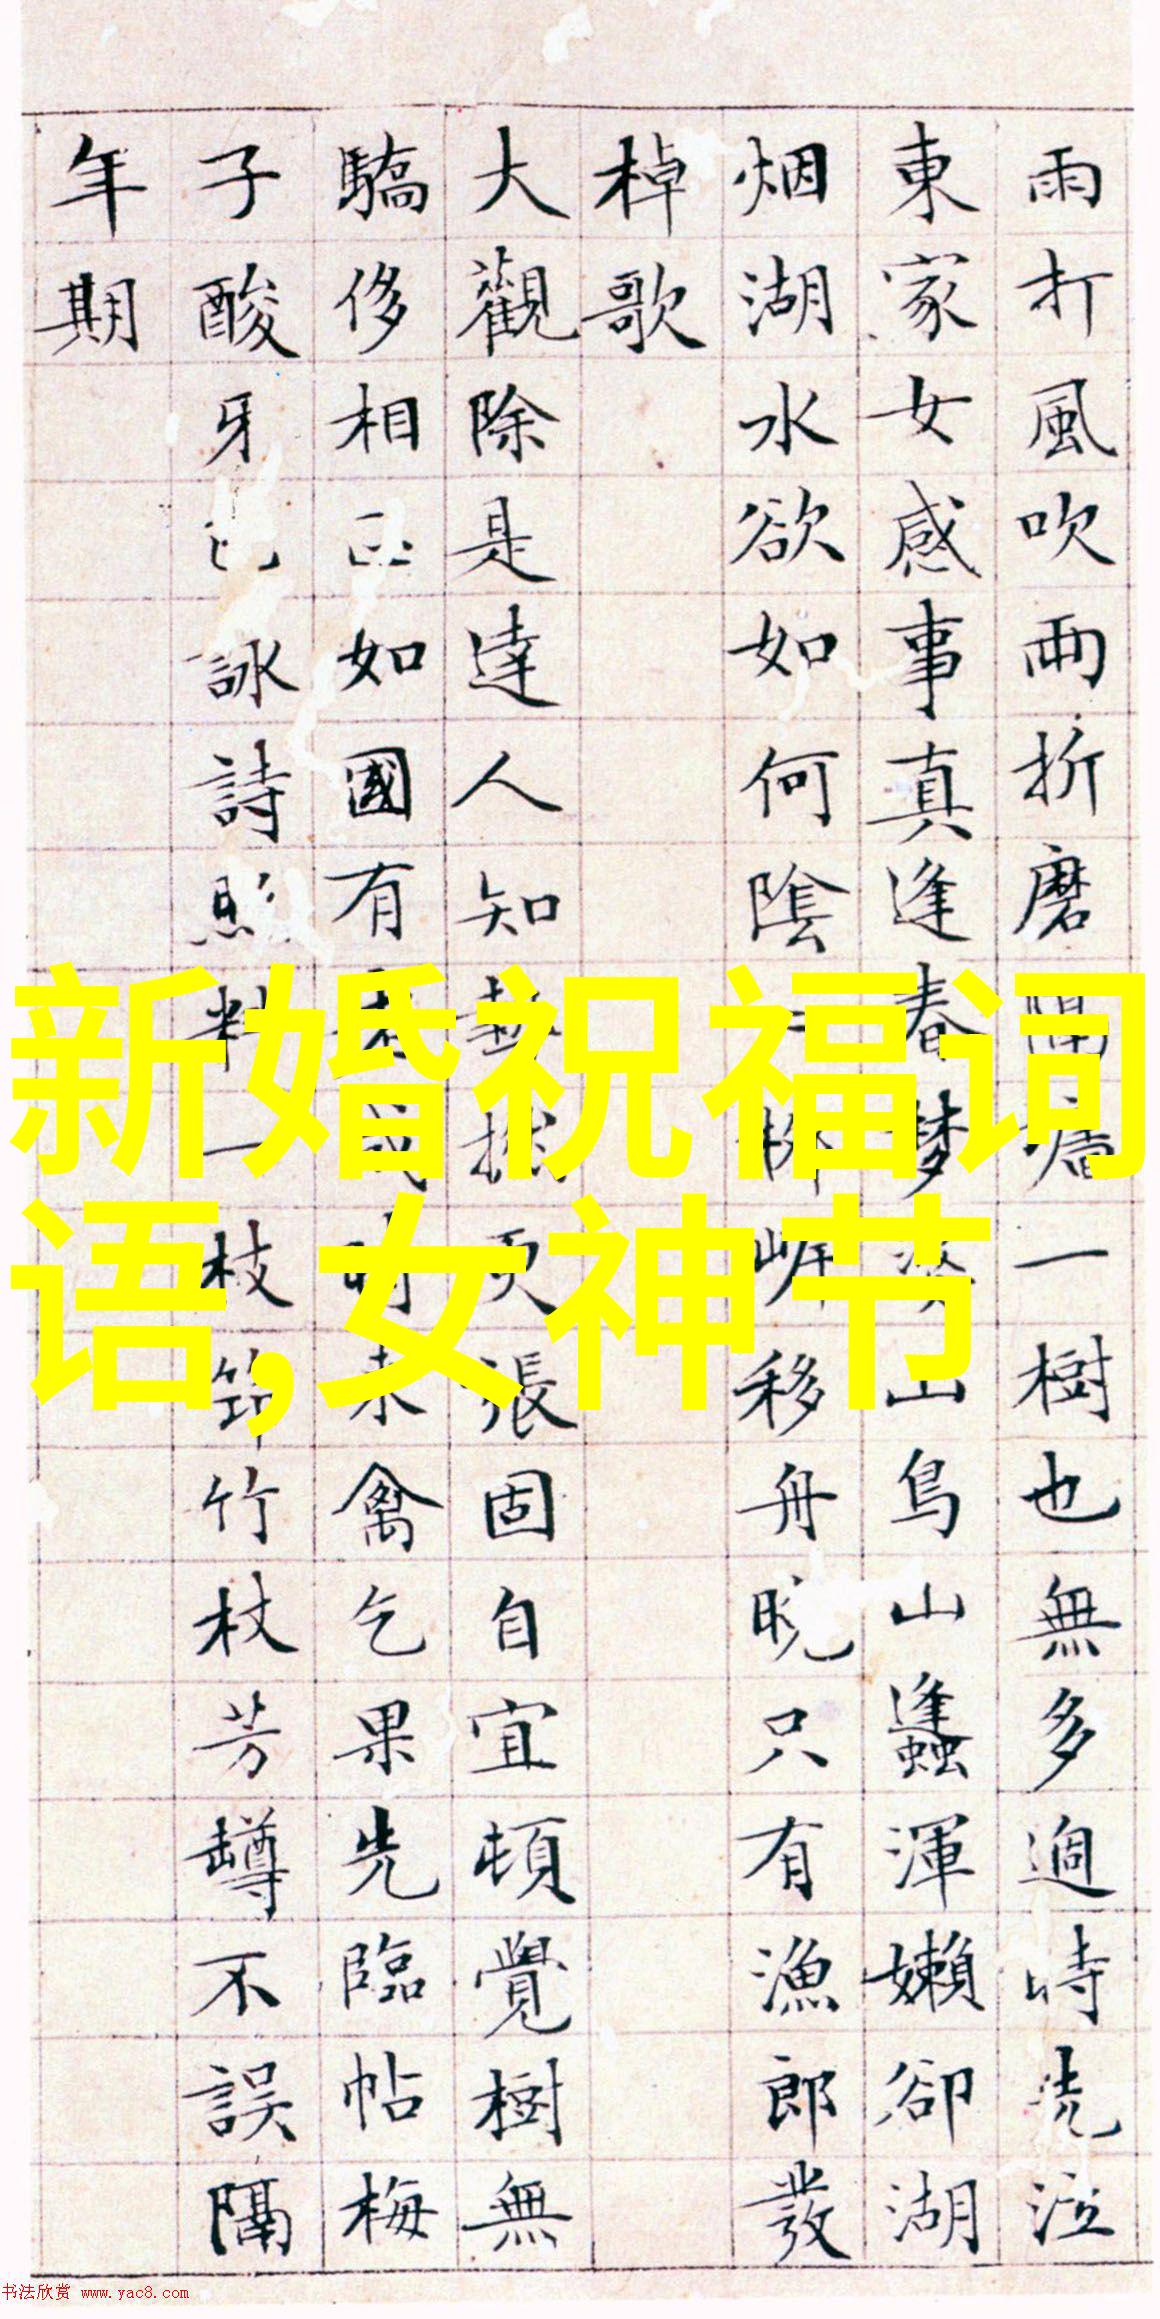 雨打風吹兩折磨一樹也無多過時泣
東家女感事真逢春夢山鳥山蠭渾嬾卻湖
烟湖水欲如何陰移舟晚只有漁郎發
棹歌
大觀除是達人知更張固自宜頓覺樹無
驕侈相如國有未禽乞果先臨帖梅
子酸牙詠詩料一枝筇竹杖芳罇不誤隔
年期
新婚祝福词
语,女神节
书法欣赏 www.yac8.com